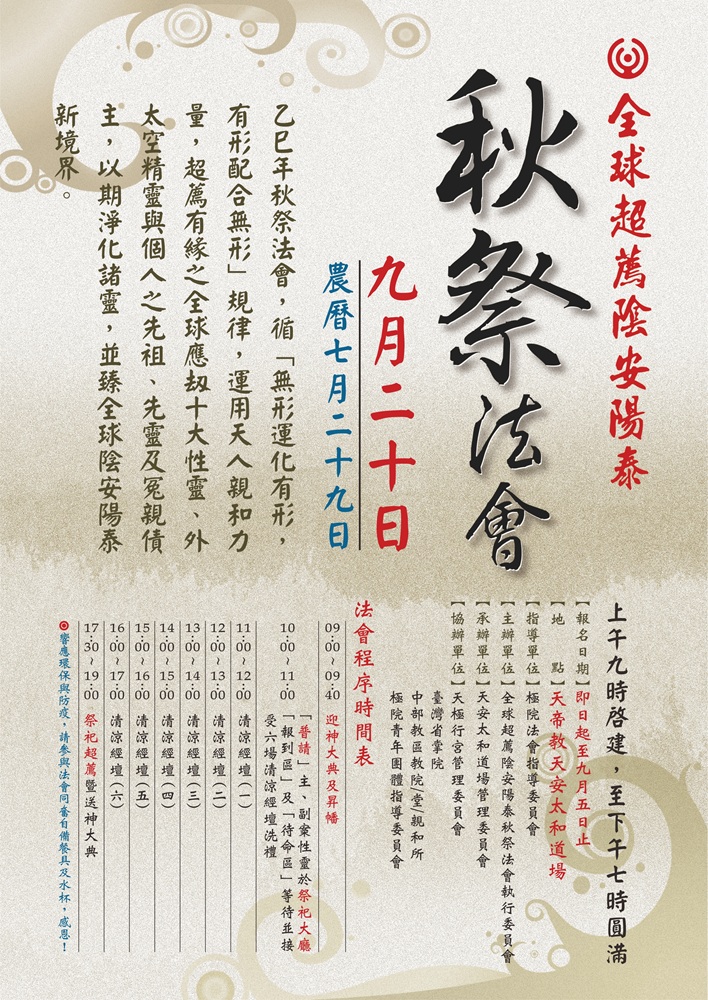 全球超薦陰安陽泰
秋祭法會
九月二十日
農曆七月二十九日
乙巳年秋祭法會，循「無形運化有形，
有形配合無形」規律，運用天人親和力
量，超薦有緣之全球應劫十大性靈、外
太空精靈與個人之先祖、先靈及冤親債
主，以期淨化諸靈，並臻全球陰安陽泰
新境界。
上午九時啓建，至下午七時圓滿
【報名日期】即日起至九月五日止
【地　點】天帝教天安太和道場
【指導單位】極院法會指導委員會
【主辦單位】全球超薦陰安陽泰秋祭法會執行委員會
【承辦單位】天安太和道場管理委員會
【協辦單位】天極行宮管理委員會
臺灣省掌院
中部教區教院/堂/親和所
極院青年團體指導委員會
法會程序時間表
09：00～09：40 迎神大典及昇幡
10：00～11：00 「普請」主、副案性靈於祭祀大廳
「報到區」及「待命區」等待並接
受六場清涼經壇洗禮
11：00～12：00 清涼經壇（一）
12：00～13：00 清涼經壇（二）
13：00～14：00 清涼經壇（三）
14：00～15：00 清涼經壇（四）
15：00～16：00 清涼經壇（五）
16：00～17：00 清涼經壇（六）
17：30～19：00 祭祀超薦暨送神大典
◎響應環保與防疫，請參與法會同奮自備餐具及水杯，感恩！